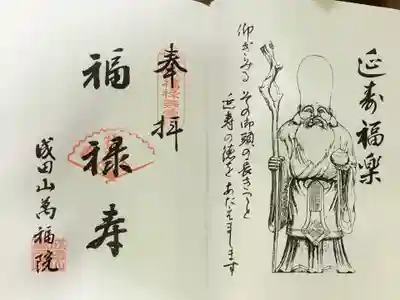 延寿福楽
仰ぎみる その御頭の長きごと
延寿の徳を あたえまします
奉拝
福禄寿
成田山萬福院